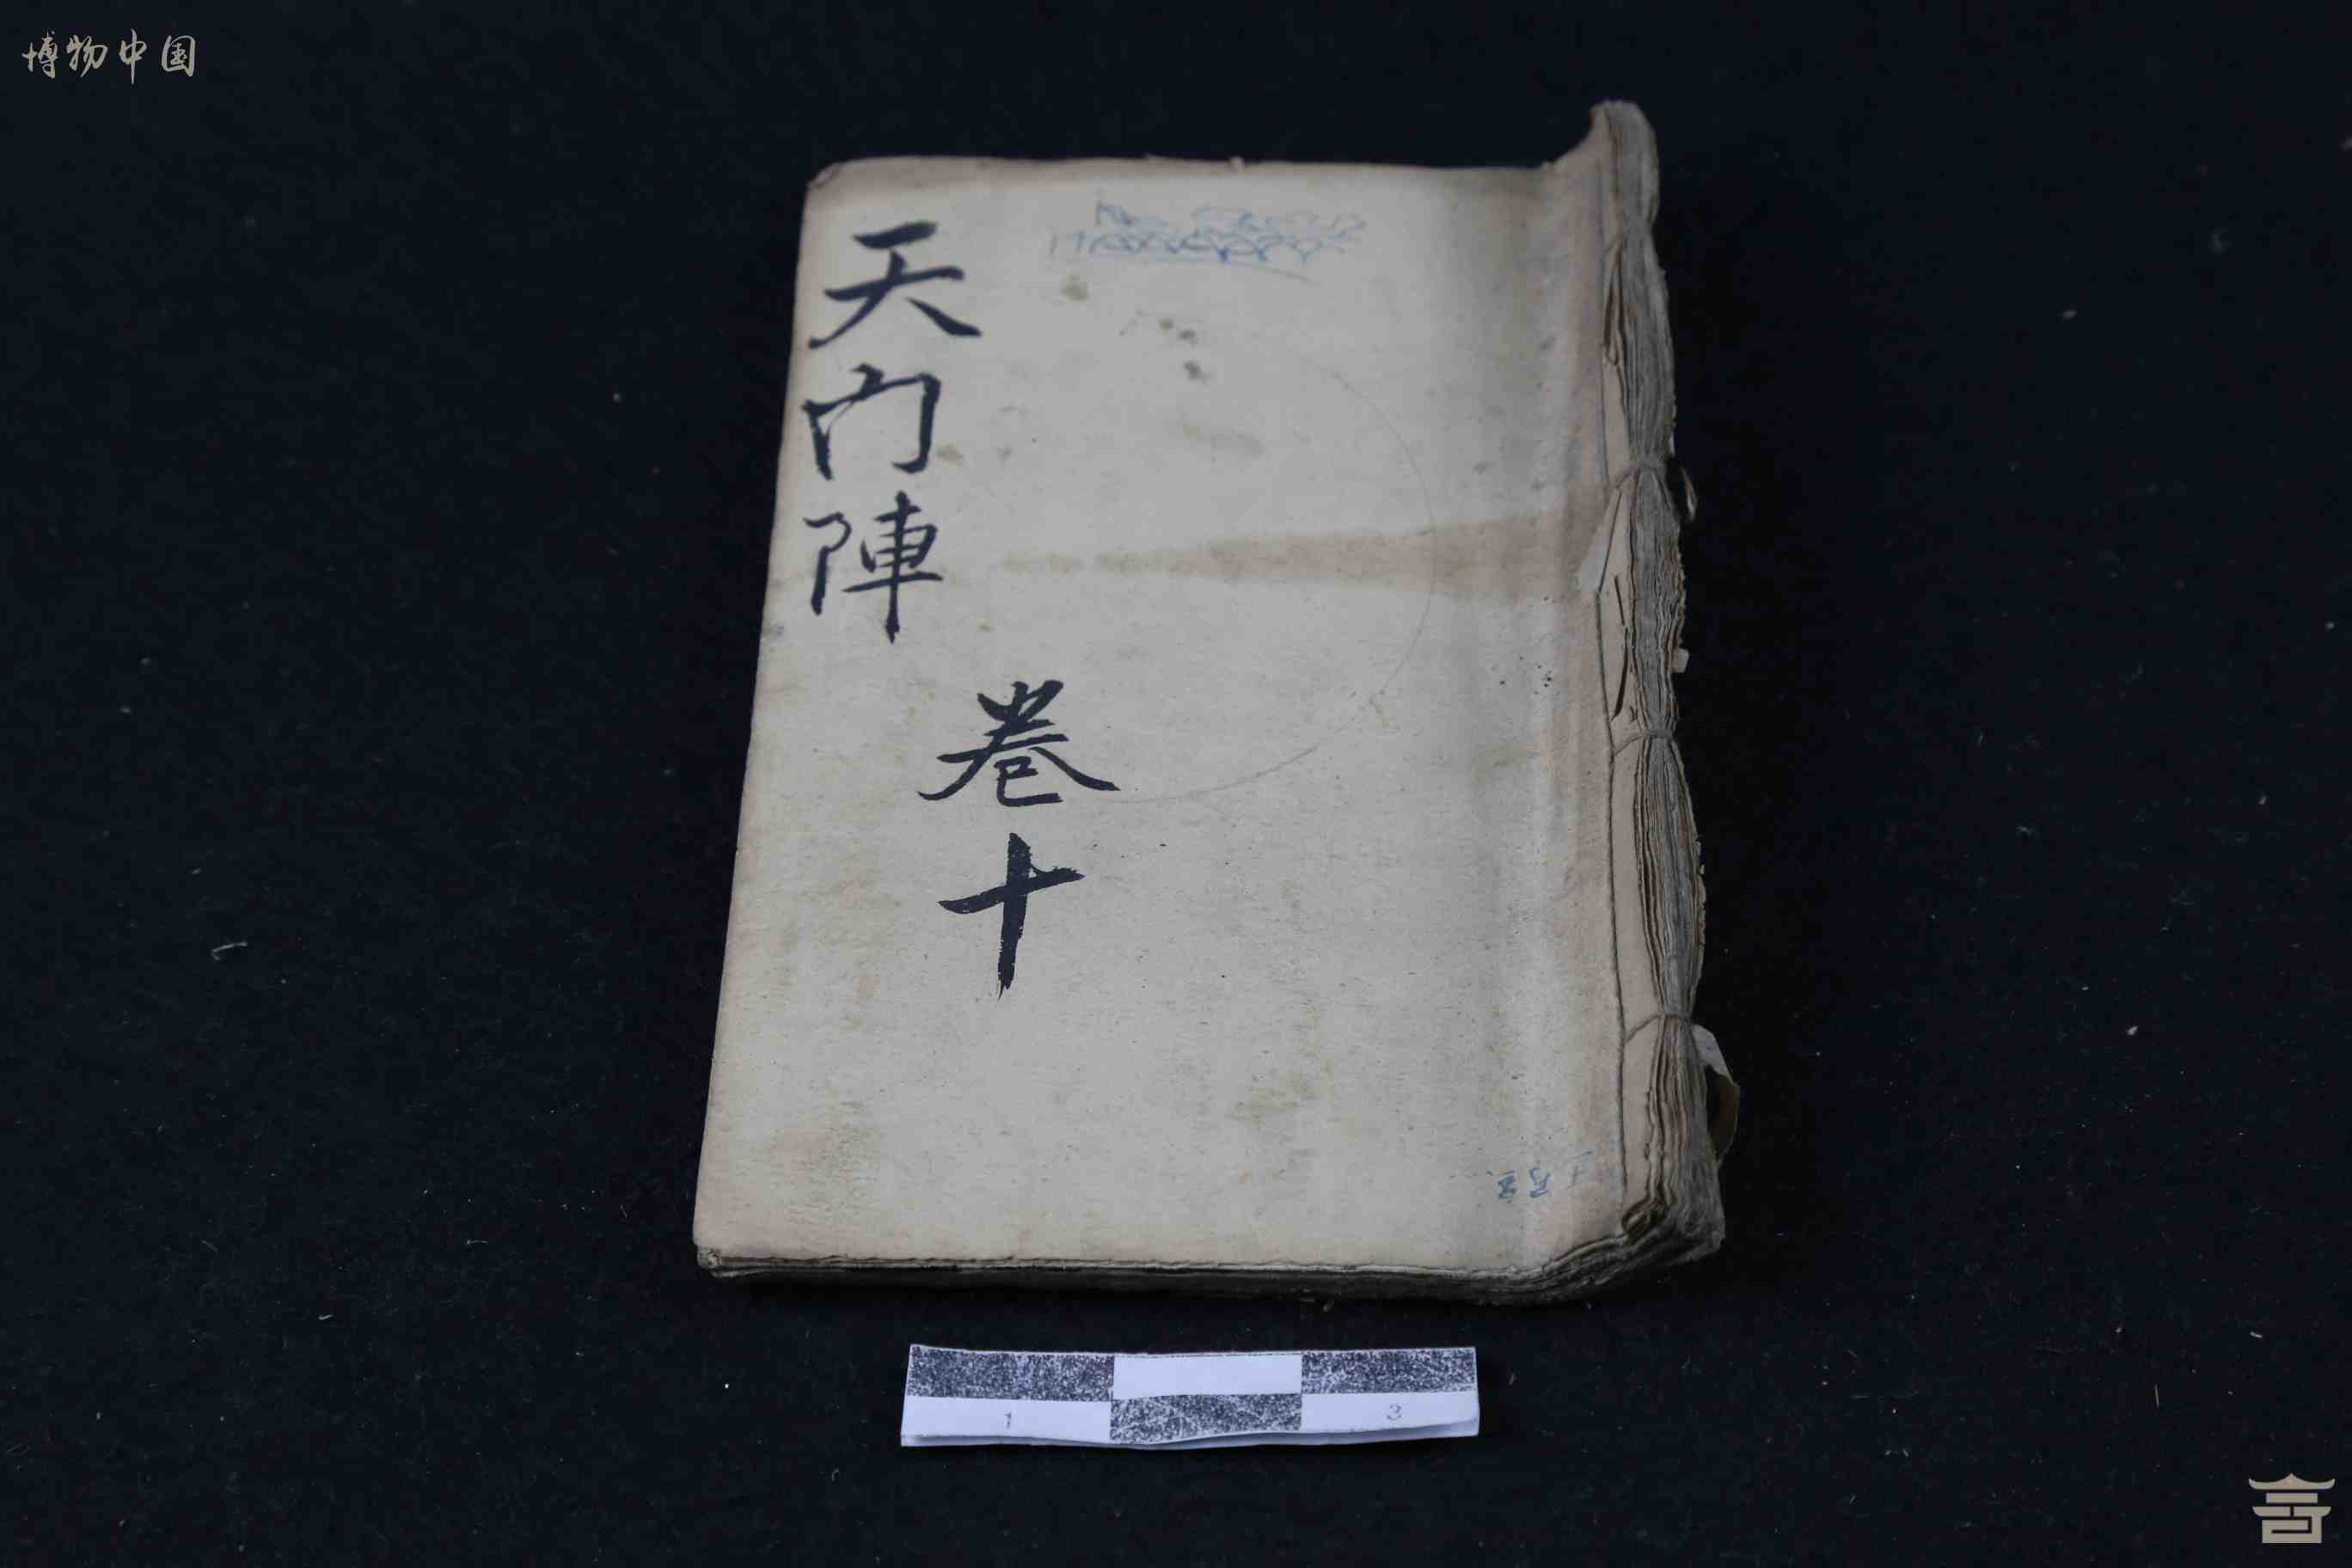 博物中国
天门陣
卷十
1 3